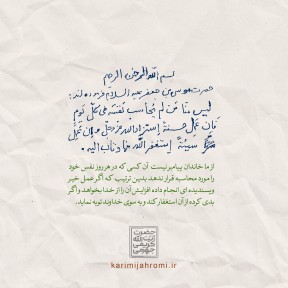 بسم الله الرحمن الرحیم
حضرت موسی بن جعفر علیه السلام فرموده اند:
لیس منا من لم یحاسب نفسه فی کل یوم
فان عمل حسنة استزاد الله عزوجل و ان عمل
سیئة استغفر الله منها و تاب الیه.
از ما خاندان پیامبر نیست آن کسی که در هر روز نفس خود
را مورد محاسبه قرار ندهد بدین ترتیب که اگر عمل خیر
و پسندیده ای انجام داده افزایش آن را از خدا بخواهد و اگر
بدی کرده از آن استغفار کند و به سوی خداوند توبه نماید.
karimijahromi.ir